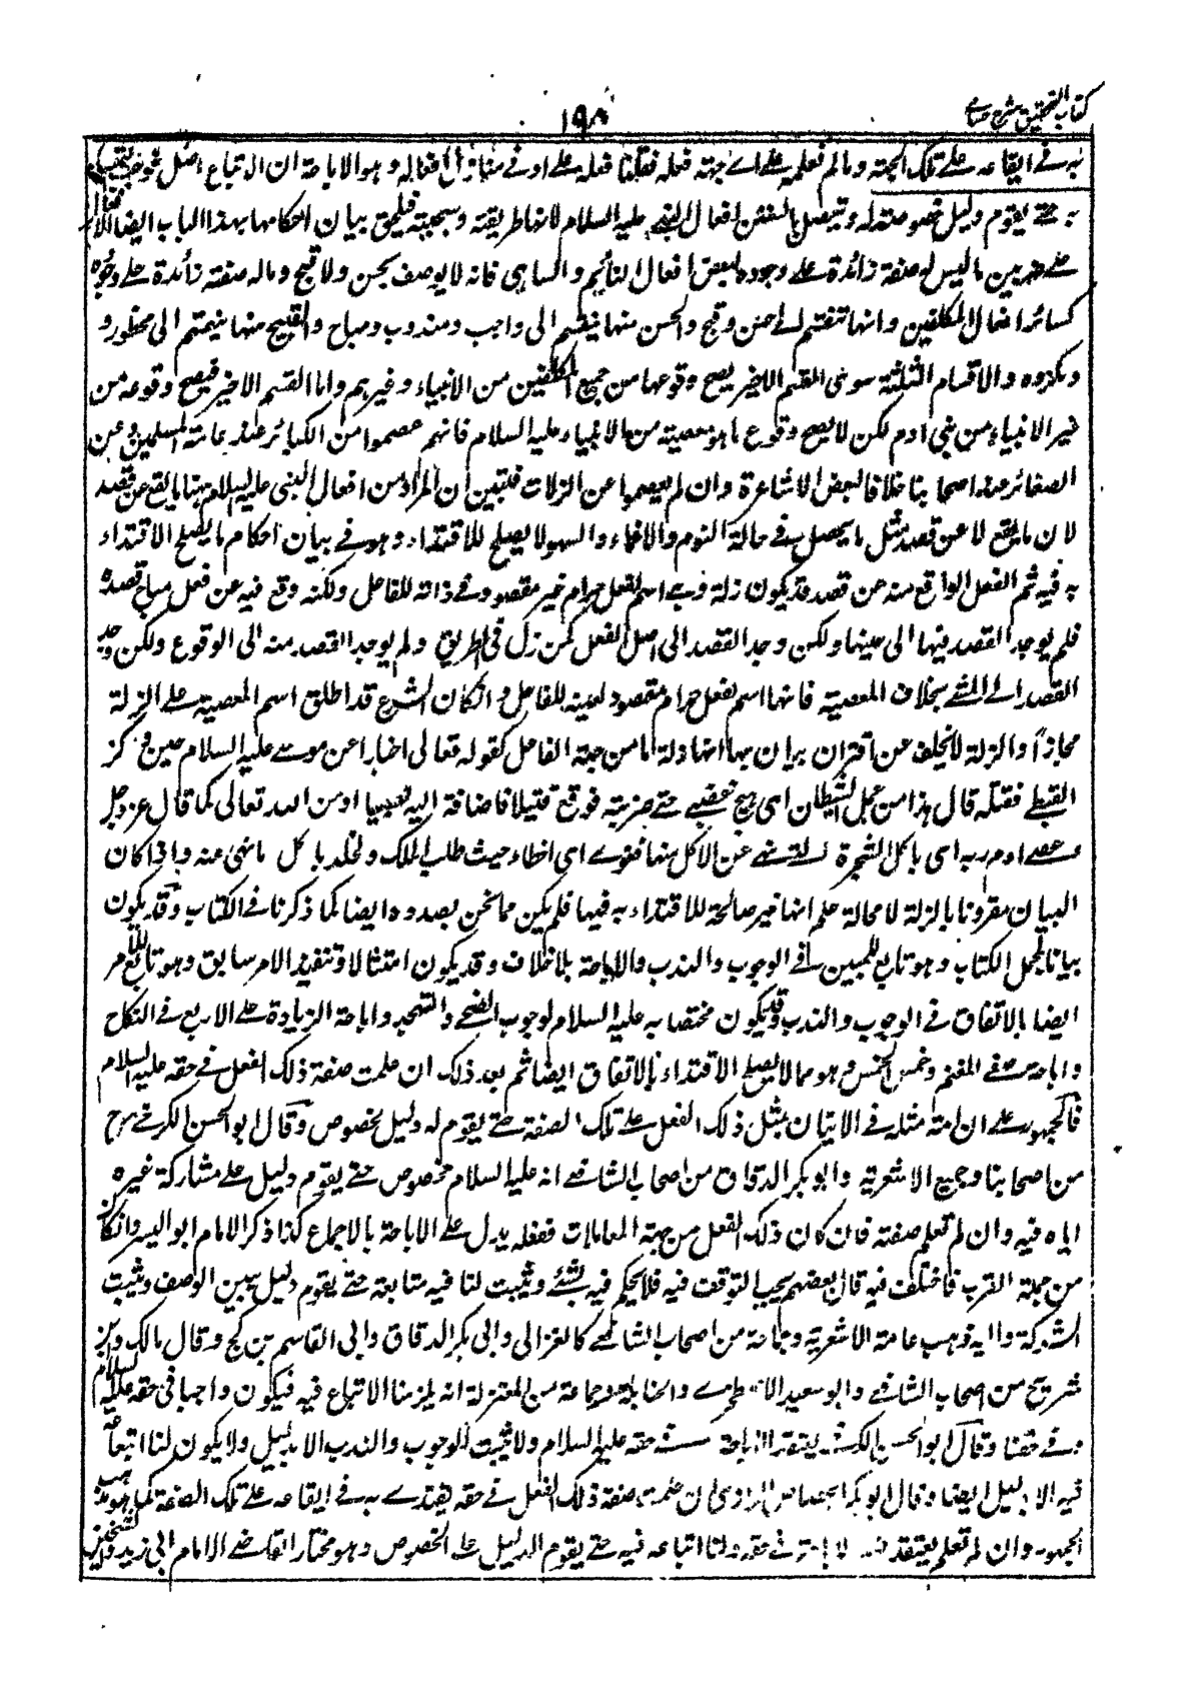 كتاب التحقيق شرح حسامي
١٩٨
به في ايقاعه على تلك الجهة وما لم نعلمه على اى جهة فعله قلنا فعله على ادنى منازل افعاله وهو الاباحة ان الاتباع اصل فوجب التمسك
به حتى يقوم دليل خصوصه قوله وتيصل بالسنن افعال النبى عليه السلام لانها طريقته وسجيته فيلحق بيان احكامها بهذا الباب ايضا الافعال
على ضربين ما ليس له صفة زائدة على وجوده لبعض افعال النائم والساهى فانه لا يوصف بحسن ولا قبح وماله صفة زائدة على وجوده
كسائر افعال المكلفين وانها تنقسم الى حسن وقبح والحسن منها ينقسم الى واجب ومندوب ومباح والقبيح منها ينقسم الى محظور و
ومكروه والاقسام الثلثة سوى القسم الاخير يصح وقوعها من جميع المكلفين من الانبياء وغيرهم واما القسم الاخير فيصح وقوعه من
غير الانبياء من بنى ادم لكن لا يصح وقوع ما هو معصية من الانبياء عليه السلام فانهم عصموا من الكبائر عند عامة المسلمين وعن
الصغائر عند اصحابنا خلافا لبعض الاشاعرة وان لم يعصموا عن الزلات فتبين ان المراد من افعال النبى عليه السلام ههنا ما يقع عن قصد
لان ما يقع لا عن قصد مثل ما يحصل فى حالة النوم والاغماء والسهو لا يصلح للاقتداء وهو فى بيان احكام ما يصلح الاقتداء
به فيه ثم الفعل الواقع منه عن قصد قد يكون زلة وهى اسم لفعل حرام غير مقصود فى ذاته للفاعل ولكنه وقع فيه عن فعل مباح قصده
فلم يوجد القصد فيها الى عينها ولكن وجد القصد الى اصل الفعل كمن زل فى الطريق ولم يوجد القصد منه الى الوقوع ولكن وجد
القصد الى المشى بخلاف المعصية فانها اسم لفعل حرام مقصود لعينه للفاعل وانكان الشرع قد اطلق اسم المعصية على الزلة
مجازا والزلة لا تخلف عن اقتران بيان بها انها زلة اما من جهة الفاعل كقوله تعالى اخبارا عن موسى عليه السلام حين وكز
القبطى فقتله قال هذا من عمل الشيطان اى هيج غضبى حتى ضربته فوقع قتيلا فاضافة اليه تعييبا او من الله تعالى كما قال عز وجل
وعصى ادم ربه اى باكل الشجرة التى نهى عن الاكل منها فغوى اى اخطاء حيث طلب الملك والخلد باكل ما نهى عنه واذا كان
البيان مقرونا بالزلة لا محالة علم انها غير صالحة للاقتداء به فيها فلم يكن مما نحن بصدده ايضا كما ذكرنا فى الكتاب وقد يكون
بيانا لمجمل الكتاب وهو تابع للمبين فى الوجوب والندب والاباحة بلا خلاف وقد يكون امتثالا وتنفيذ الامر سابق وهو تابع للامر
ايضا بالاتفاق فى الوجوب والندب وقد يكون مختصا به عليه السلام لوجوب الضحى والتهجد واباحة الزيادة على الاربع فى النكاح
واباحة صفى المغنم وخمس الخمس وهو مما لا يصلح الاقتداء بالاتفاق ايضا ثم بعد ذلك ان علمت صفة ذلك الفعل فى حقه عليه السلام
فالجمهور على ان امته مثله فى الاتيان بمثل ذلك الفعل على تلك الصفة حتى يقوم له دليل لخصوص وقال ابو الحسن الكرخى رح
من اصحابنا وجميع الاشعرية وابو بكر الدقاق من اصحاب الشافعى انه عليه السلام مخصوص حتى يقوم دليل على مشاركة غيره
اياه فيه وان لم تعلم صفته فان كان ذلك الفعل من جهة المعاملات ففعله يدل على الاباحة بالاجماع كذا ذكر الامام ابو اليسر وانكان
من جملة القرب فاختلف فيه قال بعضهم يجب التوقف فيه فلا يحكم فيه بشئ ويثبت لنا فيه متابعة حتى يقوم دليل يبين الوصف ويثبت
الشركة واليه ذهب عامة الاشعرية وجماعة من اصحاب الشافعى كالغزالى وابى بكر الدقاق وابى القاسم بن كج وقال مالك وابن
شريح من اصحاب الشافعى وابو سعيد الاصطخرى والحنابلة وجماعة من المعتزلة انه يلزمنا الاتباع فيه فيكون واجبا فى حقه عليه السلام
وفى حقنا وقال ابو الحسن الكرخى يعتقد الاباحة فى حقه عليه السلام ولا يثبت الوجوب والندب الا بدليل ولا يكون لنا اتباعه
فيه الا بدليل ايضا وقال ابو بكر الجصاص الرازى ان علمت صفة ذلك الفعل فى حقه يقتدى به فى ايقاعه على تلك الصفة كما هو مذهب
الجمهور وان لم تعلم يعتقد فيه الاباحة فى حقه ولنا اتباعه فيه حتى يقوم الدليل على الخصوص وهو مختار القاضى الامام ابى زيد والشيخين